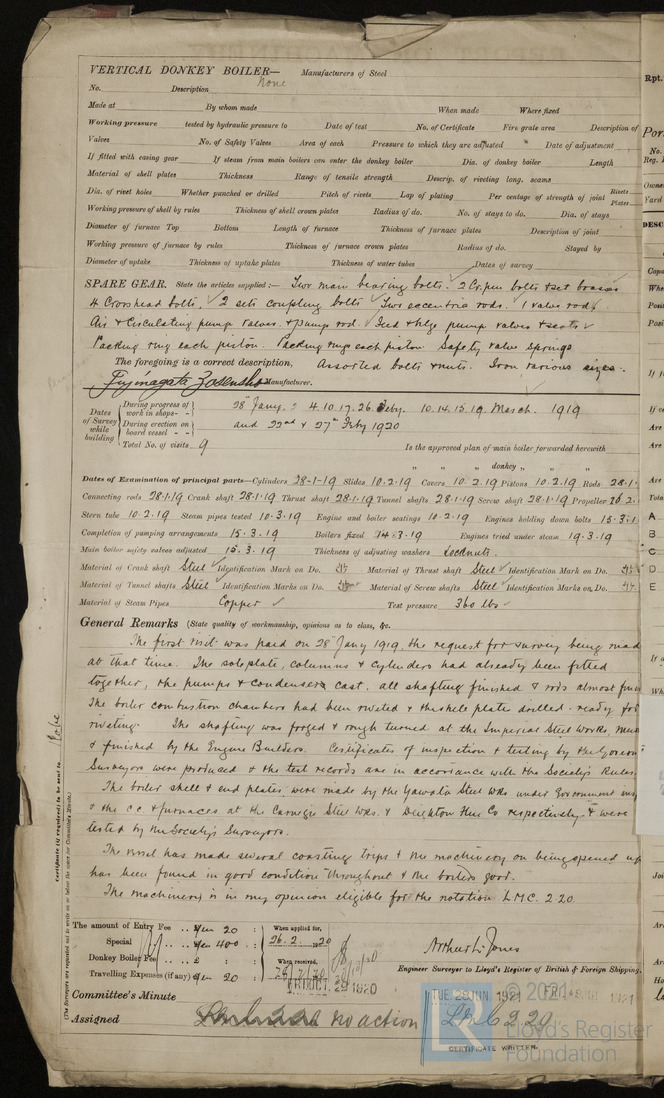 VERTICAL DONKEY BOILER— Manufacturers of Steel
None
No. Description
Made at By whom made When made Where fixed
Working pressure tested by hydraulic pressure to Date of test No. of Certificate Fire grate area Description of
Valves No. of Safety Valves Area of each Pressure to which they are adjusted Date of adjustment
If fitted with casing gear If steam from main boilers can enter the donkey boiler Dia. of donkey boiler Length
Material of shell plates Thickness Range of tensile strength Descrip. of riveting long. seams
Dia. of rivet holes Whether punched or drilled Pitch of rivets Lap of plating Per centage of strength of joint Rivets Plates
Working pressure of shell by rules Thickness of shell crown plates Radius of do. No. of stays to do. Dia. of stays
Diameter of furnace Top Bottom Length of furnace Thickness of furnace plates Description of joint
Working pressure of furnace by rules Thickness of furnace crown plates Radius of do. Stayed by
Diameter of uptake Thickness of uptake plates Thickness of water tubes Dates of survey
SPARE GEAR. State the articles supplied:— Two main bearing bolts. 2 Cr. pin bolts & set brasses
4 Crosshead bolts, 2 sets coupling bolts Two eccentric rods. 1 valve rod
Air & Circulating pump valves. & pump rod. Feed & blge pump valves & seats
Packing ring each piston. Packing rings each piston Safety valve springs
The foregoing is a correct description, Assorted bolts & nuts. Iron various sizes.
Fujinagata Zosensho Manufacturer.
Dates of Survey while building
During progress of work in shops - - 28 Jany. 4. 10. 17. 26. Feby. 10. 14. 15. 19. March. 1919
During erection on board vessel - - and 22nd & 27th Feby 1920
Total No. of visits 9 Is the approved plan of main boiler forwarded herewith
" " " donkey " "
Dates of Examination of principal parts—Cylinders 28-1-19 Slides 10.2.19 Covers 10.2.19 Pistons 10.2.19 Rods 28.1.
Connecting rods 28.1.19 Crank shaft 28.1.19 Thrust shaft 28.1.19 Tunnel shafts 28.1.19 Screw shaft 28.1.19 Propeller 10.2.
Stern tube 10.2.19 Steam pipes tested 10.3.19 Engine and boiler seatings 10.2.19 Engines holding down bolts 15.3.1
Completion of pumping arrangements 15.3.19 Boilers fixed 14.3.19 Engines tried under steam 19.3.19
Main boiler safety valves adjusted 15.3.19 Thickness of adjusting washers Locknuts.
Material of Crank shaft Steel Identification Mark on Do. Material of Thrust shaft Steel Identification Mark on Do.
Material of Tunnel shafts Steel Identification Marks on Do. Material of Screw shafts Steel Identification Marks on Do.
Material of Steam Pipes Copper Test pressure 360 lbs
General Remarks (State quality of workmanship, opinions as to class, &c.
The first visit was paid on 28 Jany 1919, the request for survey being mad
at that time. The soleplate, columns & cylinders had already been fitted
together, the pumps & condensers cast, all shafting finished & rods almost
The boiler combustion chambers had been riveted & the shell plates drilled ready for
riveting. The shafting was forged & rough turned at the Imperial Steel Works,
& finished by the Engine Builders. Certificates of inspection & testing by the Govern
Surveyors were produced & the test records are in accordance with the Society's Rules.
The boiler shell & end plates were made by the Yawata Steel Wks under Government ins
& the c.c. & furnaces at the Carnegie Steel Wks. & Deighton Flue Co respectively & were
tested by the Society's Surveyors.
The vessel has made several coasting trips & the machinery on being opened up
has been found in good condition throughout & the boilers good.
The machinery is in my opinion eligible for the notation L.M.C. 2.20.
Certificate (if required) to be sent to Kobe
(The Surveyors are requested not to write on or below the space for Committee's Minute.)
The amount of Entry Fee .. Yen 20 : When applied for,
Special .. .. Yen 400 : 26.2.1920
Donkey Boiler Fee .. .. £ : : When received,
Travelling Expenses (if any) Yen 20
Arthur L. Jones
Engineer Surveyor to Lloyd's Register of British & Foreign Shipping.
Committee's Minute FRI OCT. 29 1920 TUE. 28 JUN. 1921
Assigned no action LMC 2.20
CERTIFICATE WRITTEN
© 2021
Lloyd's Register
Foundation
Rpt.
Por
No.
Reg.
Owne
Yard
DESC
A
B
C
D
E